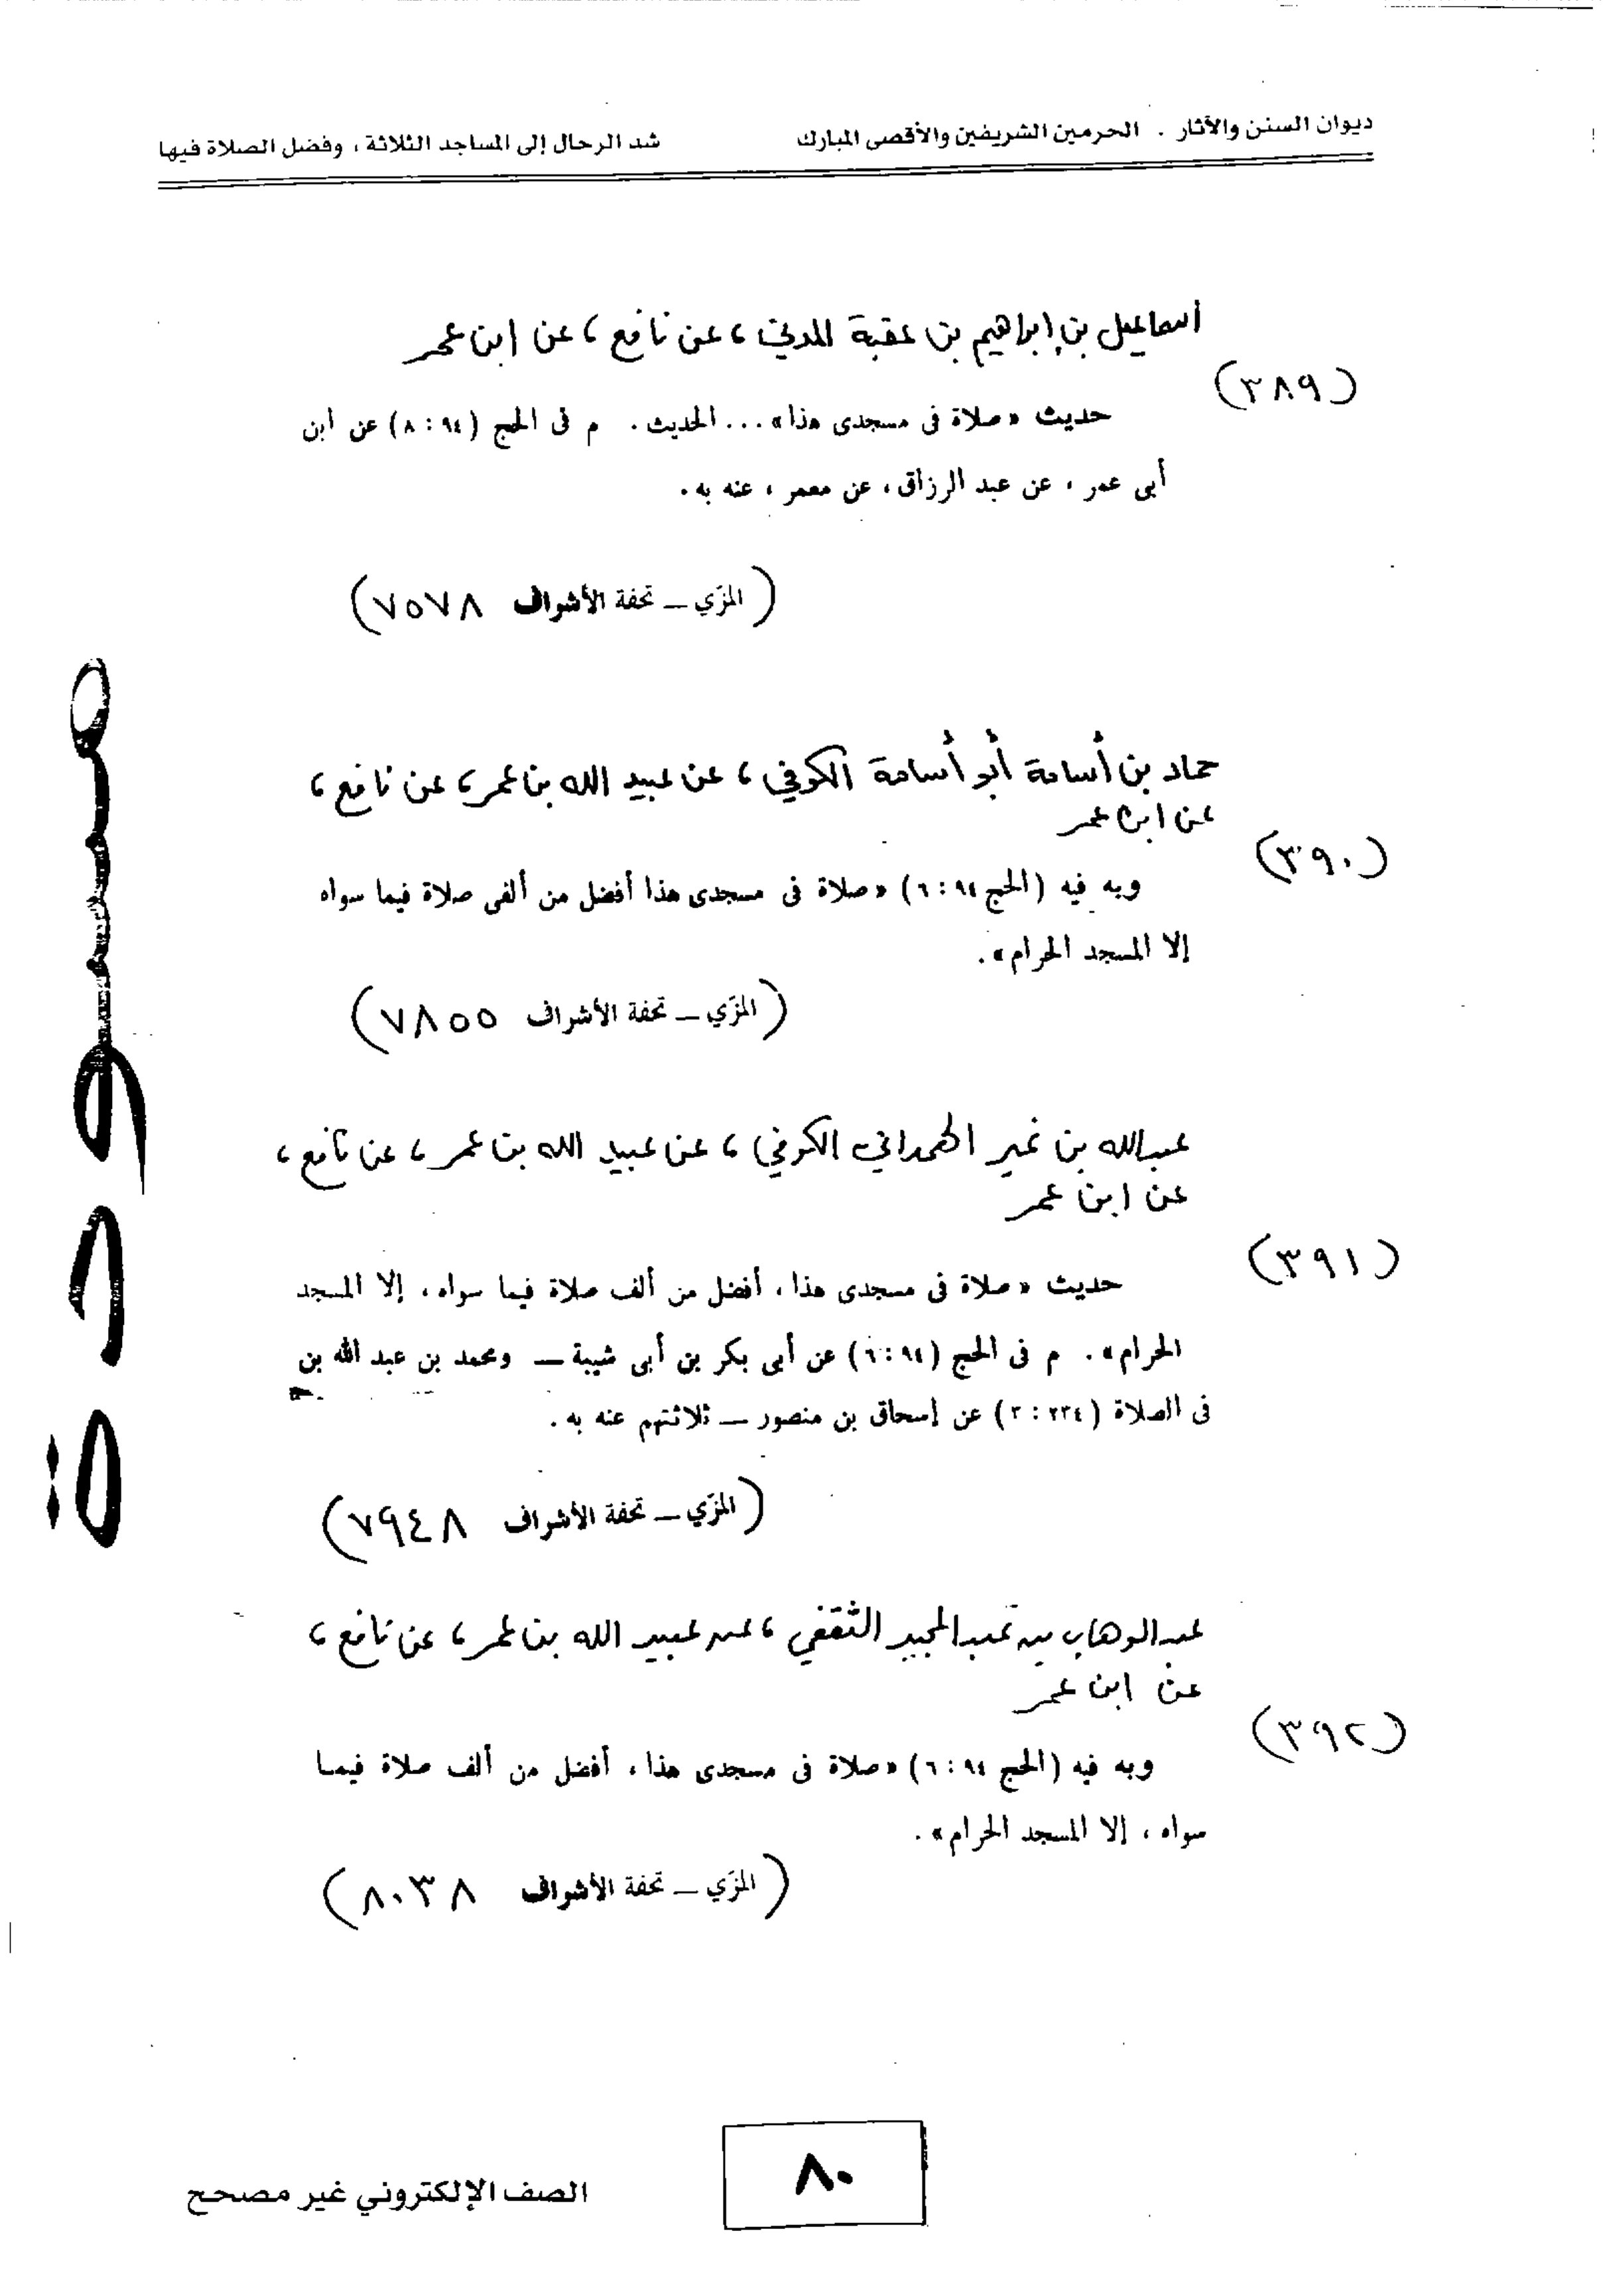 ديوان السنن والآثار . الحرمين الشريفين والأقصى المبارك شد الرحال إلى المساجد الثلاثة ، وفضل الصلاة فيها
اسماعيل بن إبراهيم بن عقبة المدني ، عن نافع ، عن ابن عمر
(٣٨٩)
حديث « صلاة فى مسجدى هذا » ... الحديث . م فى الحج (٩٤ : ٨) عن ابن
أبى عمر ، عن عبد الرزاق ، عن معمر ، عنه به .
(المزّي ــ تحفة الأشراف ٧٥٧٨)
حماد بن أسامة أبو أسامة الكوفي ، عن عبيد الله بن عمر ، عن نافع ،
عن ابن عمر
(٣٩٠)
وبه فيه (الحج ٩٤ : ٦) « صلاة فى مسجدى هذا أفضل من ألفى صلاة فيما سواه
إلا المسجد الحرام » .
(المزّي ــ تحفة الأشراف ٧٨٥٥)
عبدالله بن نمير الهمداني الكوفي ، عن عبيد الله بن عمر ، عن نافع ،
عن ابن عمر
(٣٩١)
حديث « صلاة فى مسجدى هذا ، أفضل من ألف صلاة فيما سواه ، إلا المسجد
الحرام » . م فى الحج (٩٤ : ٦) عن أبى بكر بن أبى شيبة ــ ومحمد بن عبد الله بن
فى الصلاة (٢٣٤ : ٣) عن إسحاق بن منصور ــ ثلاثتهم عنه به .
(المزّي ــ تحفة الأشراف ٧٩٤٨)
عبدالوهاب بن عبدالمجيد الثقفي ، عن عبيد الله بن عمر ، عن نافع ،
عن ابن عمر
(٣٩٢)
وبه فيه (الحج ٩٤ : ٦) « صلاة فى مسجدى هذا ، أفضل من ألف صلاة فيما
سواه ، إلا المسجد الحرام » .
(المزّي ــ تحفة الأشراف ٨٠٣٨)
مسودة
٨٠
الصف الإلكتروني غير مصحح